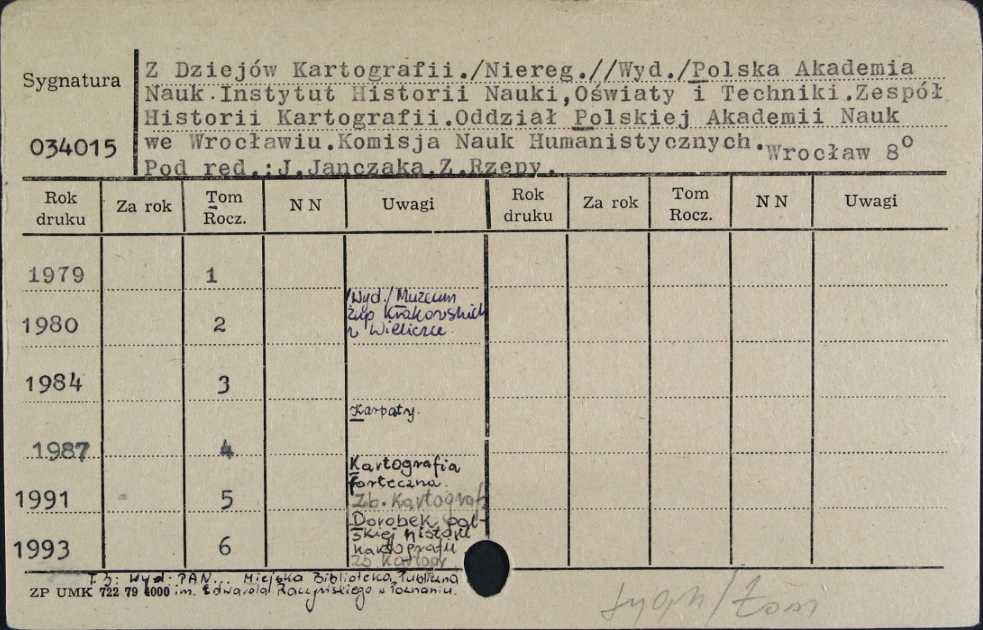 Sygnatura
034015
Z Dziejów Kartografii./Niereg.//Wyd./Polska Akademia
Nauk.Instytut Historii Nauki,Oświaty i Techniki.Zespół
Historii Kartografii.Oddział Polskiej Akademii Nauk
we Wrocławiu.Komisja Nauk Humanistycznych.Wrocław 8º
Pod red.:J.Janczaka.Z.Rzepy.
Rok druku Za rok Tom Rocz. N N Uwagi Rok druku Za rok Tom Rocz. N N Uwagi
1979 1
/Wyd./Muzeum
Żup Krakowskich
1980 2
w Wieliczce.
1984 3
Karpaty.
1987 4
Kartografia
forteczna.
1991 5 Zb. Kartograf
Dorobek pol-
skiej historii
1993 6 kartografii
Zb Kartogr
T. 3: Wyd: PAN... Miejska Biblioteka Publiczna
ZP UMK 722 79 4000 im. Edwarda Raczyńskiego w Poznaniu.